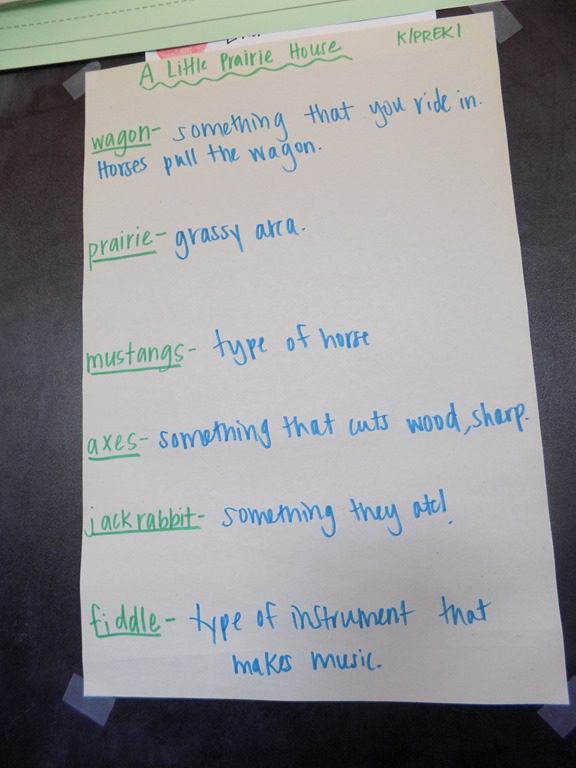 A Little Prairie House
K/PREK 1
wagon- something that you ride in.
Horses pull the wagon.
prairie- grassy area.
mustangs- type of horse
axes- something that cuts wood, sharp.
jackrabbit- something they ate!
fiddle- type of instrument that
makes music.